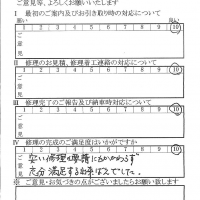 ご意見等、よろしくお願いいたします
Ⅰ 最初のご案内及びお引き取り時の対応について
悪い 良い
1 2 3 4 5 6 7 8 9 10
ご意見
Ⅱ 修理のお見積、修理着工連絡の対応について
1 2 3 4 5 6 7 8 9 10
ご意見
Ⅲ 修理完了のご報告及び納車時対応について
1 2 3 4 5 6 7 8 9 10
ご意見
Ⅳ 修理の完成のご満足度はいかがですか
1 2 3 4 5 6 7 8 9 10
ご意見
安い修理の費用にもかかわらず
充分満足する出来ばえでした。
※ ご意見・お気づきの点がございましたらお願い致します